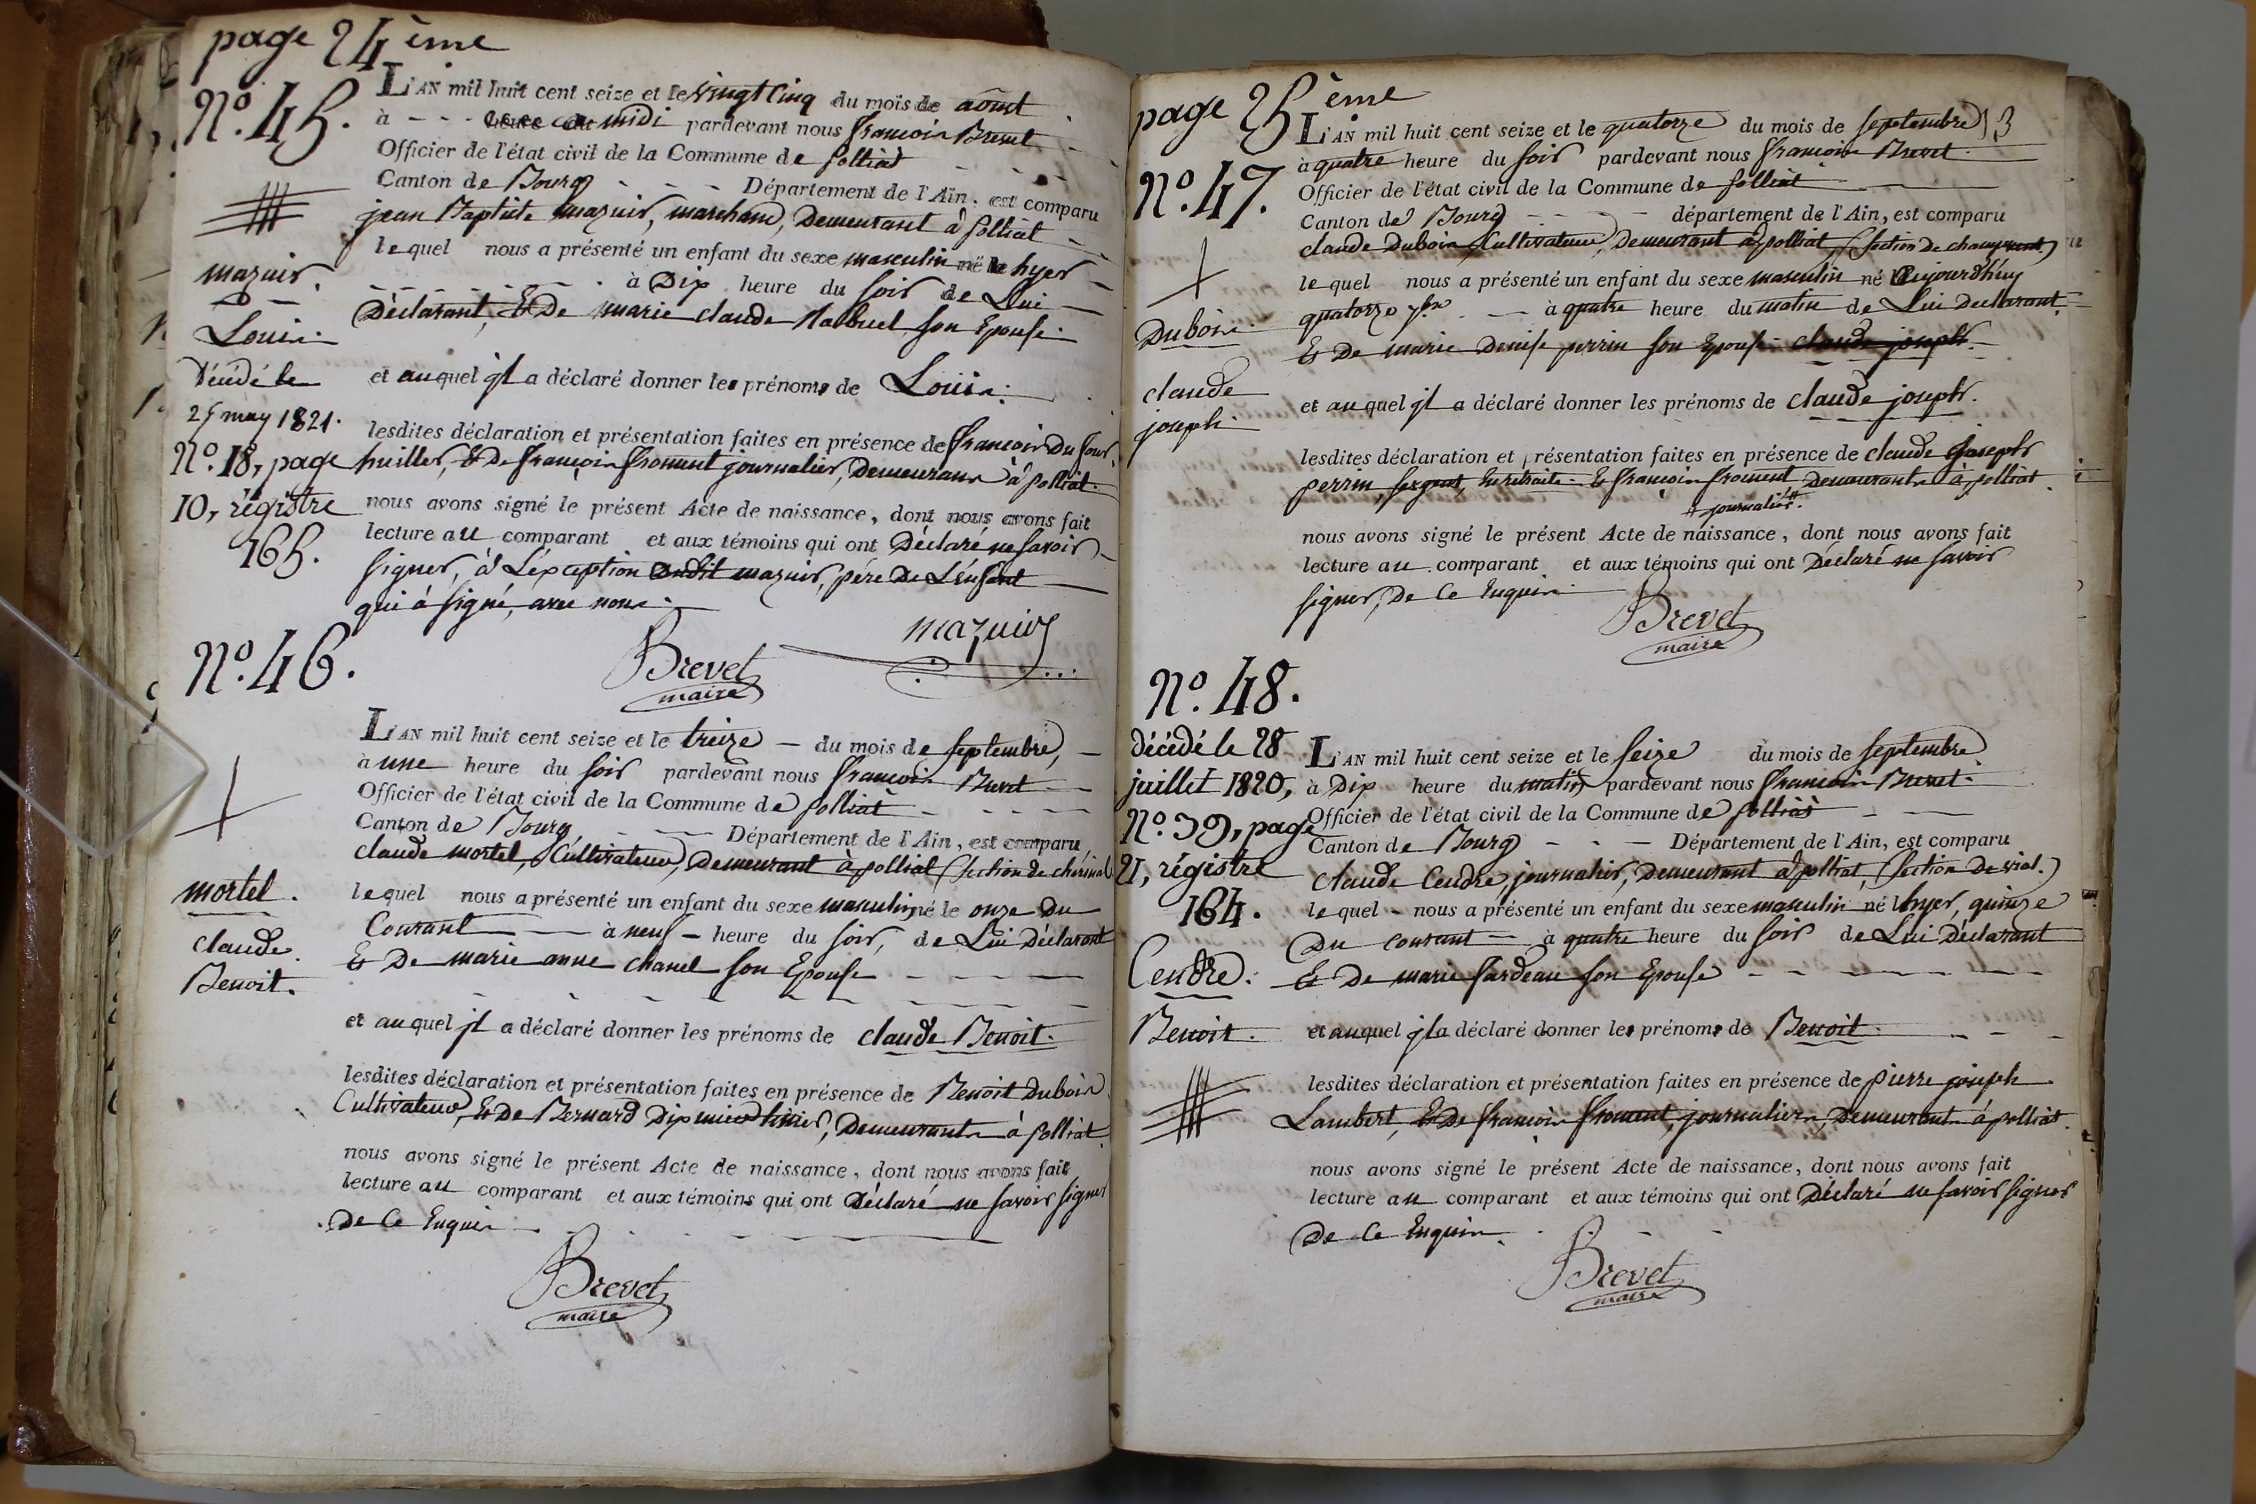 page 24ème
N.º 45.
L'AN mil huit cent seize et le vingt cinq du mois de aôust
à - - - heure du midi pardevant nous françois Brevet
Officier de l'état civil de la Commune de polliat
Canton de Bourg - - - Département de l'Ain, est comparu
jean Baptiste mazuir, marchand, Demeurant à polliat
lequel nous a présenté un enfant du sexe masculin né le hyer
à Dix heure du soir de Lui
Déclarant, Et De marie claude Nabuel son Epouse.
et auquel jl a déclaré donner les prénoms de Louis.
lesdites déclaration et présentation faites en présence de françois Dufour,
huillier, Et De françois froment journalier, Demeurans à polliat.
nous avons signé le présent Acte de naissance, dont nous avons fait
lecture au comparant et aux témoins qui ont Déclaré ne savoir
signer, à L'éxception dudit mazuir, pére De L'énfant
qui à signé, avec nous.
mazuir.
Louis.
Décédé le
25 may 1821.
N.º 18, page
10, régistre
165.
mazuir
Brevet
maire
N.º 46.
L'AN mil huit cent seize et le treize du mois de septembre,
à une heure du soir pardevant nous françois Brevet
Officier de l'état civil de la Commune de polliat
Canton de Bourg - - Département de l'Ain, est comparu
claude mortel, Cultivateur, Demeurant à polliat (section de
lequel nous a présenté un enfant du sexe masculin né le onze Du
Courant à neuf heure du soir, de Lui Déclarant
Et De marie anne chanel son Epouse
et auquel jl a déclaré donner les prénoms de claude Benoit.
lesdites déclaration et présentation faites en présence de Benoit Dubois
Cultivateur, Et De Bernard Demeurants à polliat.
nous avons signé le présent Acte de naissance, dont nous avons fait
lecture au comparant et aux témoins qui ont Déclaré ne savoir signer
De Ce Enquis
mortel.
claude
Benoit.
Brevet
maire
page 25ème
N.º 47.
L'AN mil huit cent seize et le quatorze du mois de septembre
à quatre heure du soir pardevant nous françois Brevet.
Officier de l'état civil de la Commune de polliat
Canton de Bourg - - - département de l'Ain, est comparu
claude Dubois, Cultivateur, Demeurant à polliat, (section de
lequel nous a présenté un enfant du sexe masculin né Aujourd'huy
quatorze 7bre à quatre heure du matin de Lui Déclarant
Et De marie Denise perrin son Epouse claude joseph.
et auquel jl a déclaré donner les prénoms de claude joseph.
lesdites déclaration et présentation faites en présence de claude joseph
perrin, sergent, En retraite Et françois froment Demeurants à polliat.
journalier.
nous avons signé le présent Acte de naissance, dont nous avons fait
lecture au comparant et aux témoins qui ont Déclaré ne savoir
signer, De Ce Enquis
Dubois.
claude
joseph.
Brevet
maire
N.º 48.
L'AN mil huit cent seize et le seize du mois de septembre
à Dix heure du matin pardevant nous françois Brevet.
Officier de l'état civil de la Commune de polliat
Canton de Bourg - - - Département de l'Ain, est comparu
claude Cendre, journalier, Demeurant à polliat, (section de vial.)
lequel nous a présenté un enfant du sexe masculin né hyer, quinze
Du courant à quatre heure du soir de Lui Déclarant
Et De marie fardeau son Epouse
et auquel jl a déclaré donner les prénoms de Benoit.
lesdites déclaration et présentation faites en présence de pierre joseph
Lambert, Et De françois froment, journaliers, Demeurants à polliat.
nous avons signé le présent Acte de naissance, dont nous avons fait
lecture au comparant et aux témoins qui ont Déclaré ne savoir signer
De Ce Enquis
décédé le 28
juillet 1820,
N.º 39, page
21, régistre
164.
Cendre.
Benoit.
Brevet
maire